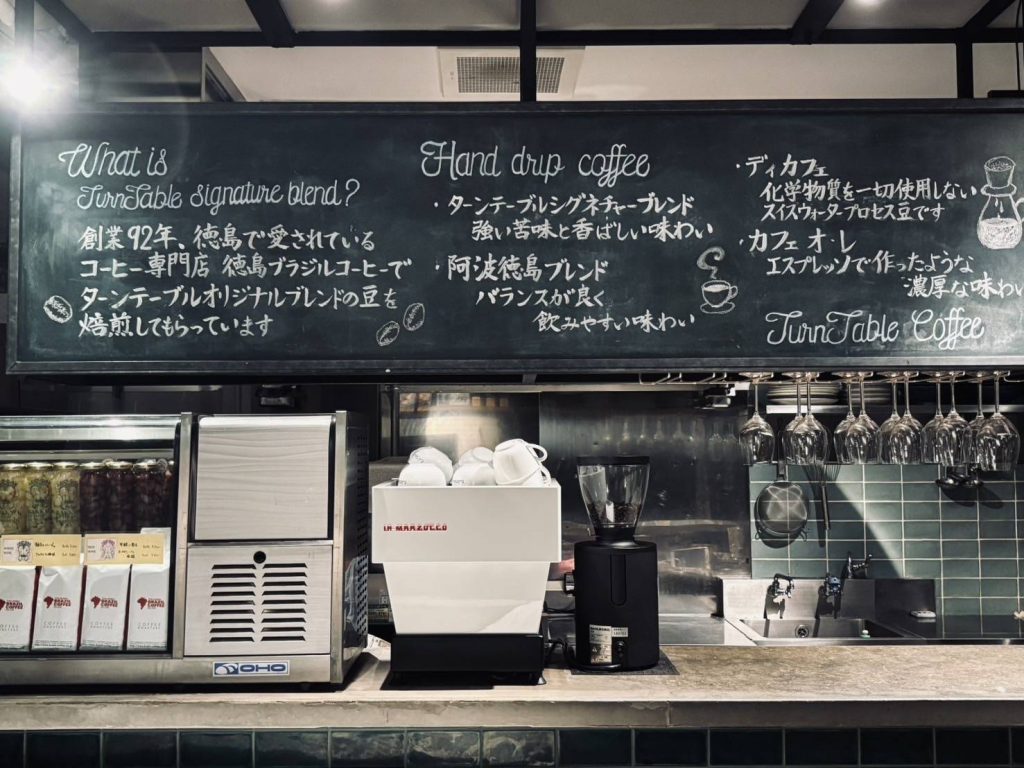 What is
TurnTable signature blend?
創業92年、徳島で愛されている
コーヒー専門店 徳島ブラジルコーヒーで
ターンテーブルオリジナルブレンドの豆を
焙煎してもらっています
Hand drip coffee
・ターンテーブルシグネチャーブレンド
強い苦味と香ばしい味わい
・阿波徳島ブレンド
バランスが良く
飲みやすい味わい
・ディカフェ
化学物質を一切使用しない
スイスウォータープロセス豆です
・カフェ オ・レ
エスプレッソで作ったような
濃厚な味わい
TurnTable Coffee
LA MARZOCCO
OHO
BRAZIL
COFFEE